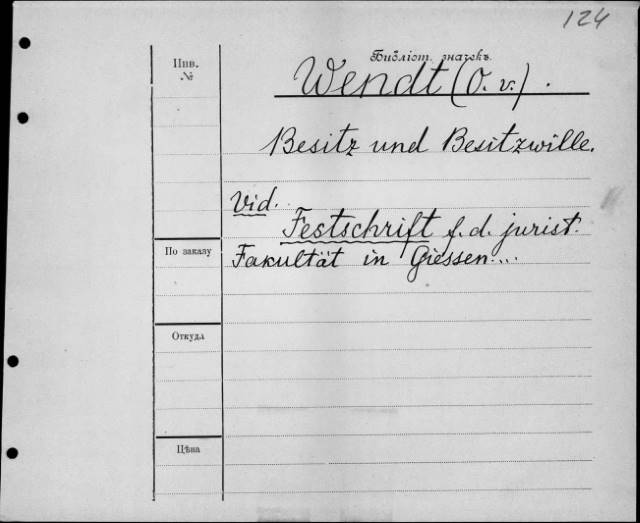 124
Библіот. значекъ.
Инв.
№
Wendt (O. v.).
Besitz und Besitzwille.
Vid.
Festschrift f. d. jurist.
Fakultät in Giessen...
По заказу
Откуда
Цѣна